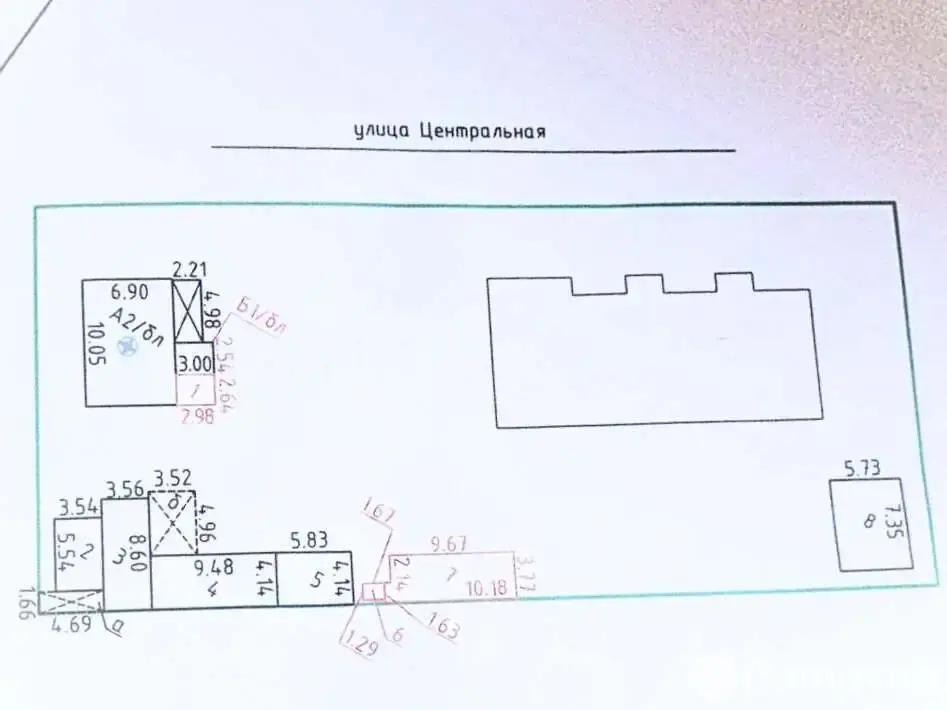 улица Центральная
2.21
6.90
4.98
А2/бл
Б1/бл
10.05
2.54
3.00
2.64
1
2.98
3.52
3.56
б
3.54
4.96
5.54
2
3
8.60
5.83
1.67
9.67
9.48
4
4.14
5
4.14
2.14
7
3.77
10.18
1.66
4.69
а
1.29
6
1.63
5.73
8
7.35